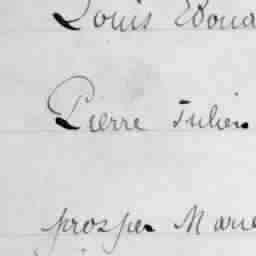 Louis Edoua
Pierre Julien
prosper Marie